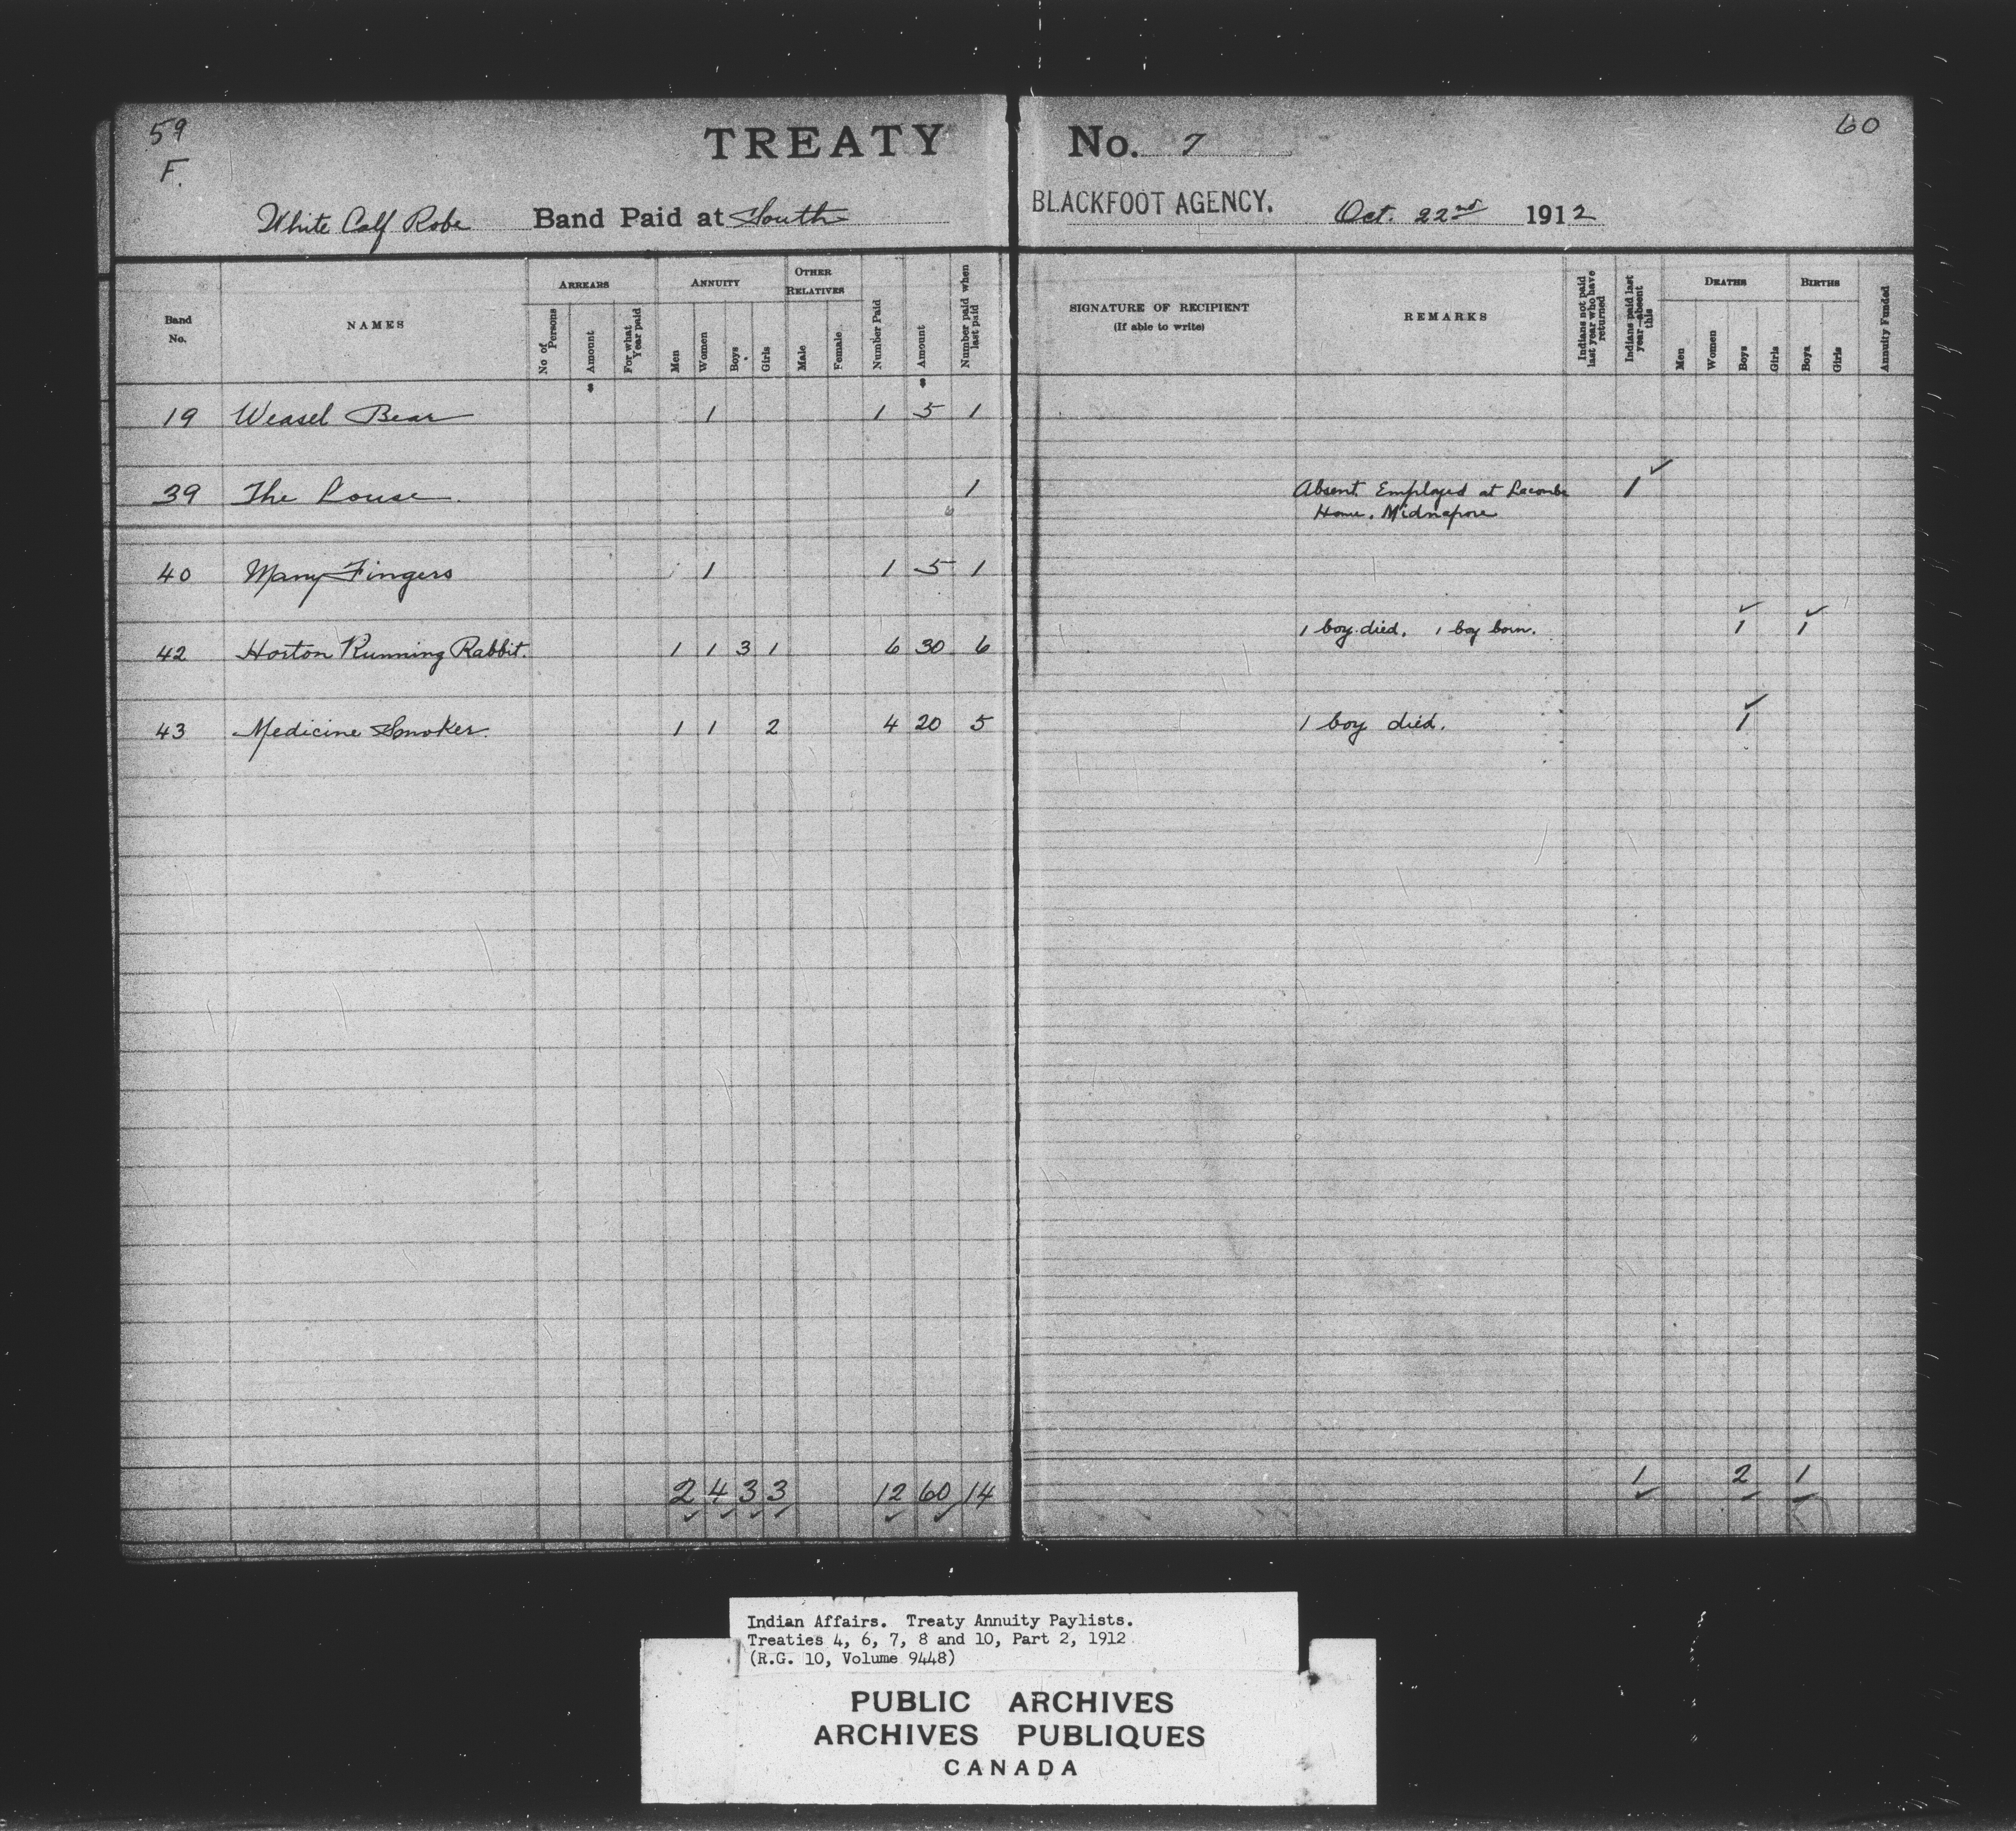 59
F.
TREATY No. 7
60
White Calf Robe Band Paid at South BLACKFOOT AGENCY. Oct. 22nd 1912
Band No. NAMES ARREARS No of Persons Amount For what Year paid ANNUITY Men Women Boys Girls OTHER RELATIVES Male Female Number Paid Amount Number paid when last paid
SIGNATURE OF RECIPIENT (If able to write) REMARKS Indians not paid last year who have returned Indians paid last year—absent this DEATHS Men Women Boys Girls BIRTHS Boys Girls Annuity Funded
19 Weasel Bear 1 1 5 1
39 The Louse. 1 Absent. Employed at Lacombe 1 ✓
Home. Midnapore
40 Many Fingers 1 1 5 1
42 Horton Running Rabbit. 1 1 3 1 6 30 6 1 boy died. 1 boy born. 1 ✓ 1 ✓
43 Medicine Smoker. 1 1 2 4 20 5 1 boy died. 1 ✓
2 4 3 3 12 60 14 1 2 1
Indian Affairs. Treaty Annuity Paylists.
Treaties 4, 6, 7, 8 and 10, Part 2, 1912
(R.G. 10, Volume 9448)
PUBLIC ARCHIVES
ARCHIVES PUBLIQUES
CANADA